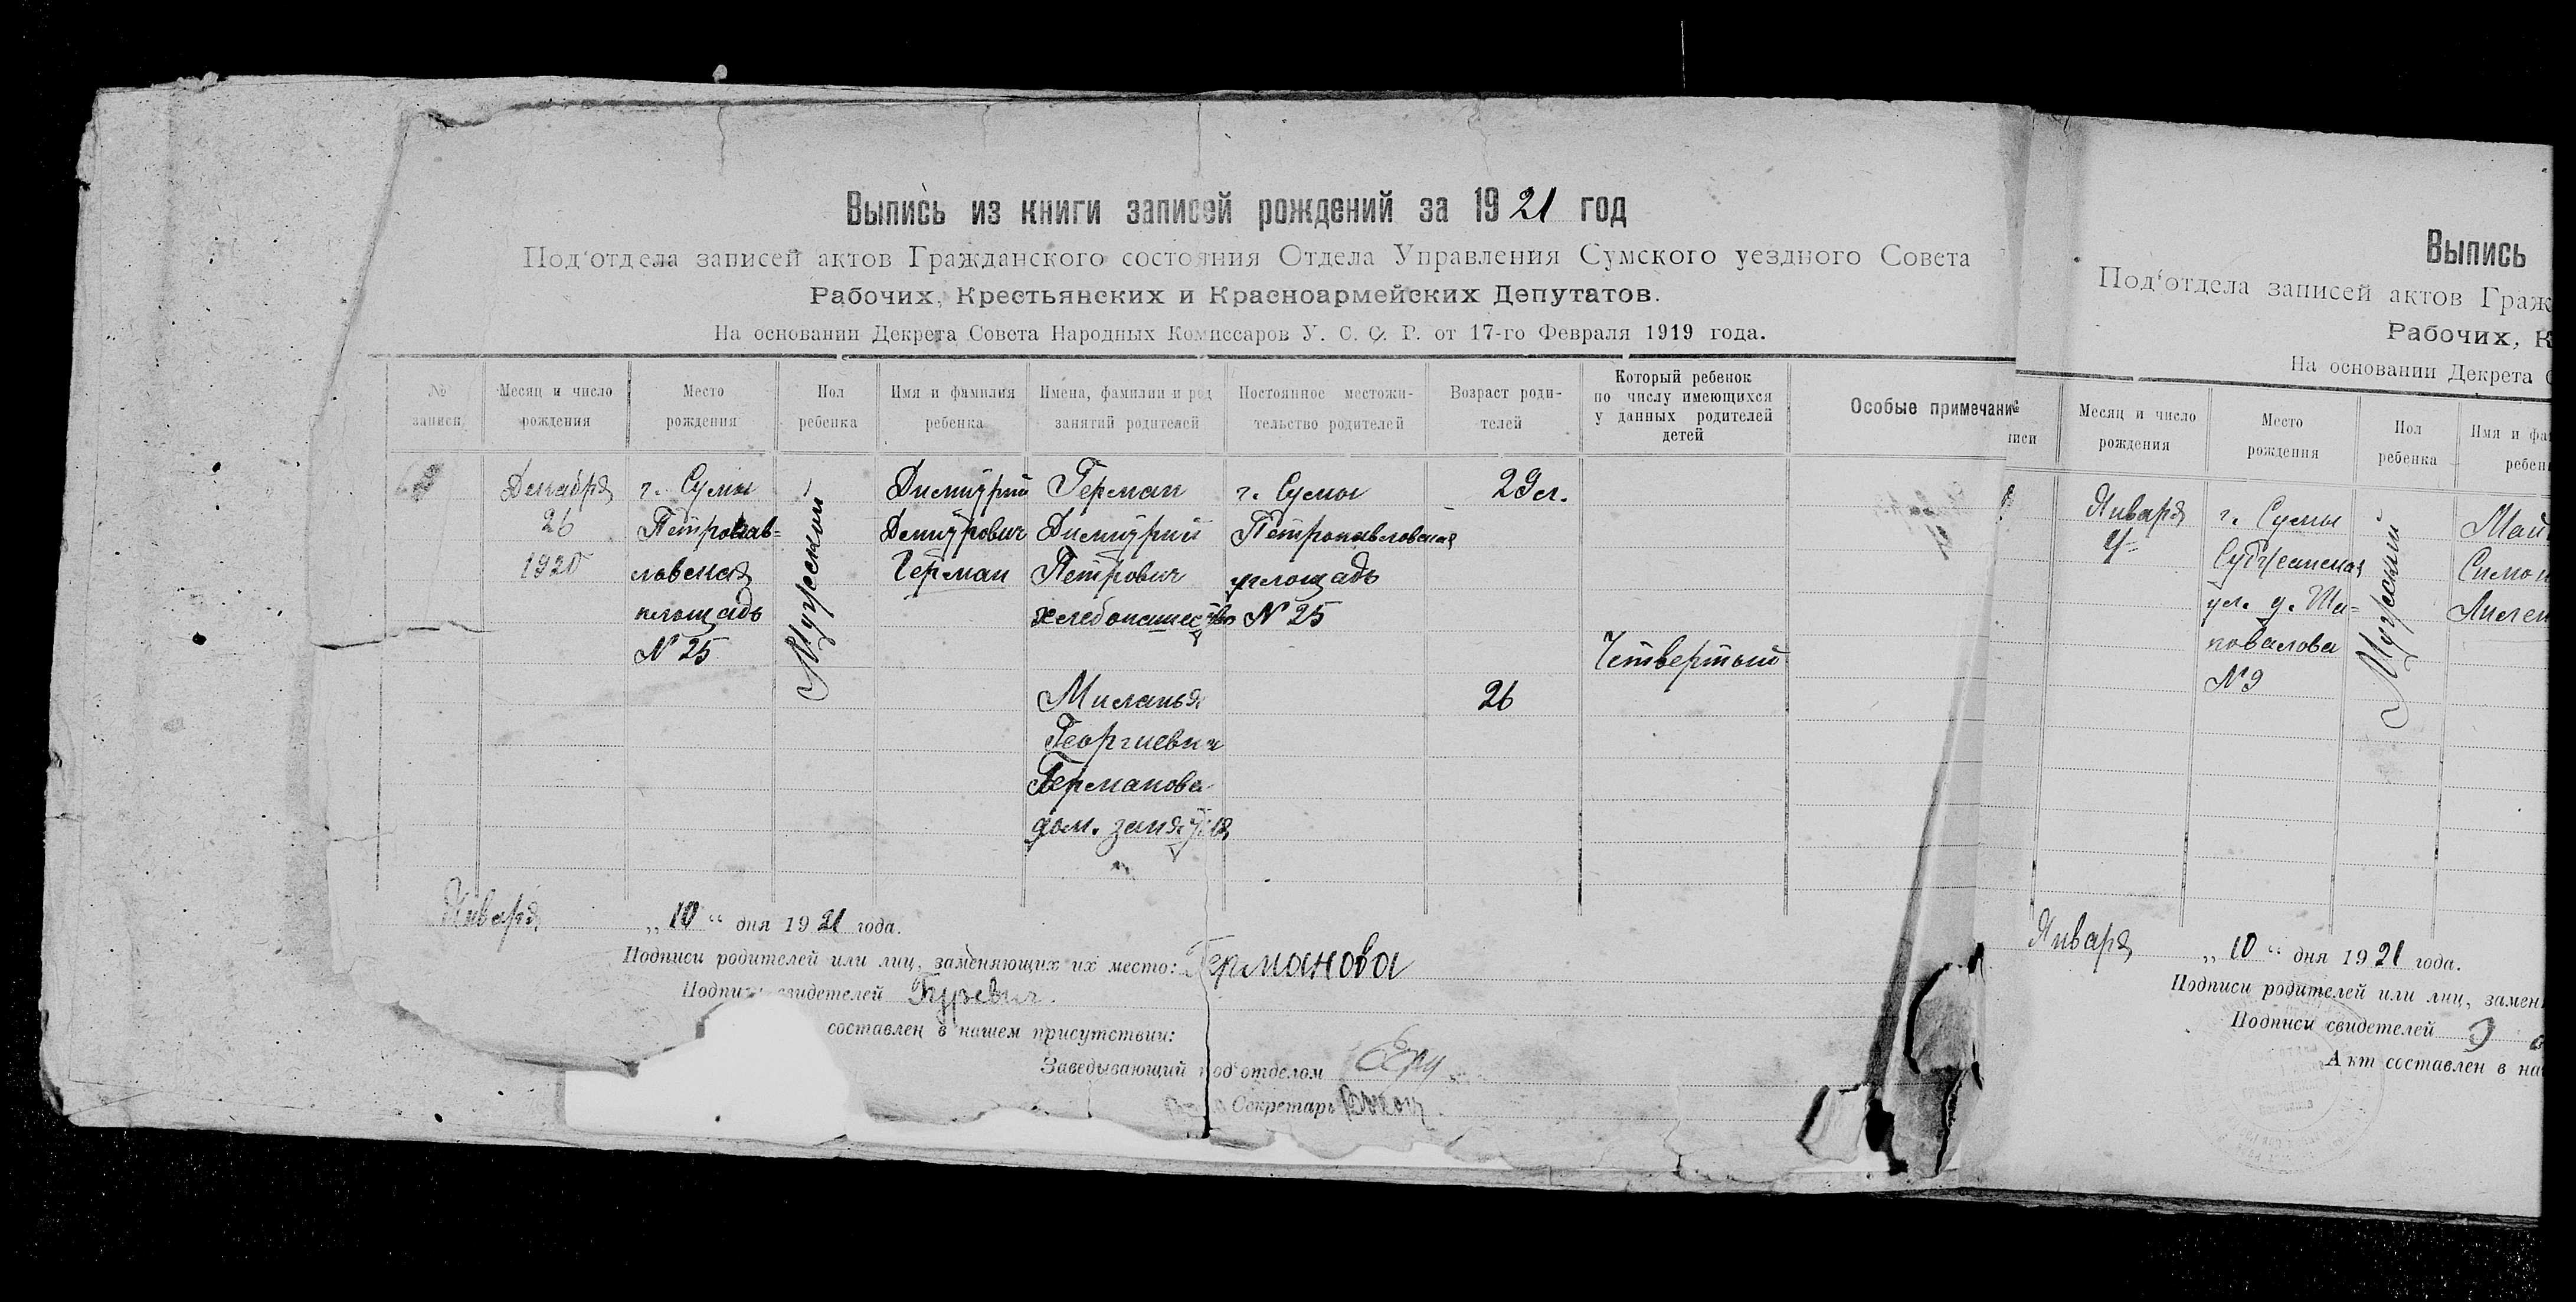 Выпись из книги записей рождений за 1921 год
Под‘отдела записей актов Гражданского состояния Отдела Управления Сумского уездного Совета
Рабочих, Крестьянских и Красноармейских Депутатов.
На основании Декрета Совета Народных Комиссаров У. С. С. Р. от 17-го Февраля 1919 года.
№ записи
Месяц и число рождения
Место рождения
Пол ребенка
Имя и фамилия ребенка
Имена, фамилии и род занятий родителей
Постоянное местожи-
тельство родителей
Возраст роди-
телей
Который ребенок
по числу имеющихся
у данных родителей
детей
Особые примечания
Декабря
26
1920
г. Сумы
Петропав-
ловская
площадь
№ 25
Мужской
Димитрий
Димитрович
Герман
Герман
Димитрий
Петрович
хлебопашество
Миланья
Георгиевна
Германова
дом. занятия
г. Сумы
Петропавловская
площадь
№ 25
29 л.
26
Четвертый
Января „10“ дня 1921 года.
Подписи родителей или лиц, заменяющих их место: Германова
Подписи свидетелей Гуревич.
составлен в нашем присутствии:
Заведывающий под‘отделом
Секретарь
Выпись
Под‘отдела записей актов Граж
Рабочих, К
На основании Декрета С
иси
Месяц и число
рождения
Место
рождения
Пол
ребенка
Имя и фа
ребен
Января
4
г. Сумы
Суджанская
ул. д. Ша-
повалова
№ 9
Мужской
Января „10“ дня 1921 года.
Подписи родителей или лиц, замен
Подписи свидетелей
Акт составлен в на